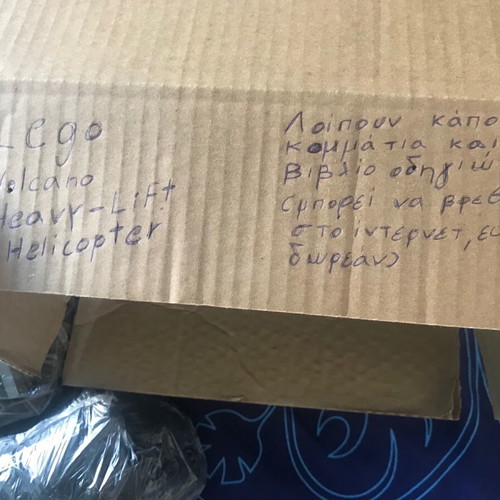 Lego
Volcano
Heavy-Lift
Helicopter
Λοίπουν κάπο
κομμάτια και
βιβλίο οδηγιώ
(μπορεί να βρε
στο ίντερνετ,
δωρεαν)